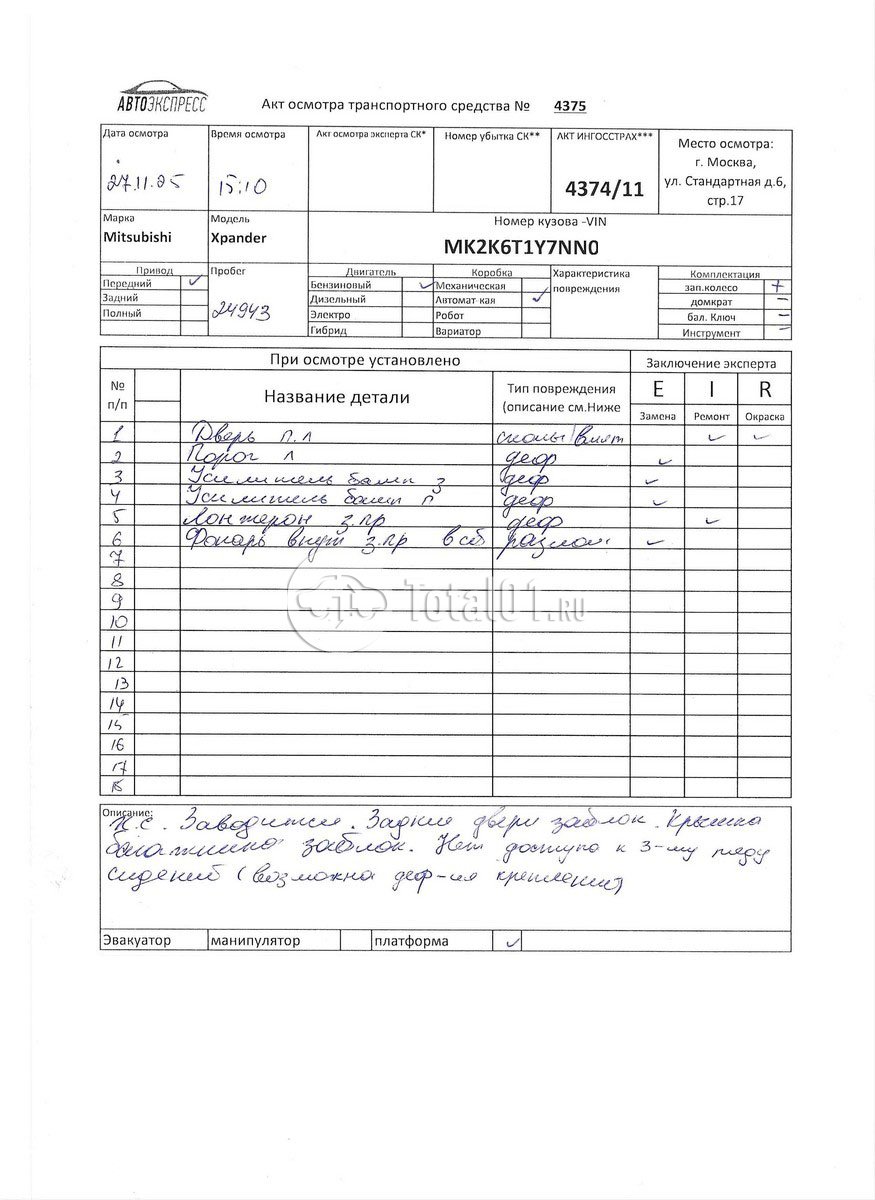 АВТОЭКСПРЕСС
Акт осмотра транспортного средства № 4375
Дата осмотра
Время осмотра
Акт осмотра эксперта СК*
Номер убытка СК**
АКТ ИНГОССТРАХ***
Место осмотра:
г. Москва,
ул. Стандартная д.6,
стр.17
27.11.25
15:10
4374/11
Марка
Модель
Номер кузова -VIN
Mitsubishi
Xpander
MK2K6T1Y7NN0
Привод
Пробег
Двигатель
Коробка
Характеристика
повреждения
Комплектация
Передний ✓
Бензиновый ✓
Механическая
зап.колесо +
Задний
Дизельный
Автомат кая ✓
домкрат –
Полный
24943
Электро
Робот
бал. Ключ –
Гибрид
Вариатор
Инструмент –
При осмотре установлено
Заключение эксперта
№
п/п
Название детали
Тип повреждения
(описание см.Ниже
E I R
Замена Ремонт Окраска
1 Дверь п.л сколы/вмят ✓ ✓
2 Порог л деф ✓
3 Усилитель бамп з деф ✓
4 Усилитель бамп п деф ✓
5 Лонжерон з.пр деф ✓
6 Фонарь внут з.пр в сб разлом ✓
7
8
9
10
11
12
13
14
15
16
17
18
Total01.RU
Описание:
Н.С. Заводится. Задние двери заблок. Крышка
багажника заблок. Нет доступа к 3-му ряду
сидений (возможна деф-ия крепления)
Эвакуатор
манипулятор
платформа ✓